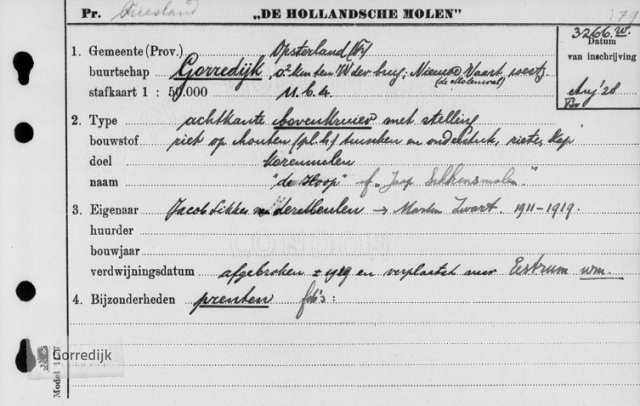 Pr. Friesland „DE HOLLANDSCHE MOLEN" 179
3266.W.
Datum van inschrijving
Aug '28
1. Gemeente (Prov.) Opsterland (Fr)
buurtschap Gorredijk a² km ten W der brug; Nieuwe Vaart, oostz
(de Molenwal)
stafkaart 1 : 50.000 11.C.4.
2. Type achtkante bovenkruier met stelling
bouwstof riet op houten (pl.h.) tusschen en onderstuk, rieten kap
doel korenmolen
naam "de Hoop" of "Jaap Sikkensmolen"
3. Eigenaar Jacob Sikkes v. der Meulen → Marten Zwart. 1911-1919.
huurder
bouwjaar
verdwijningsdatum afgebroken ± 1919 en verplaatst naar Eestrum wm.
4. Bijzonderheden prenten foto's :
Gorredijk
Model 1